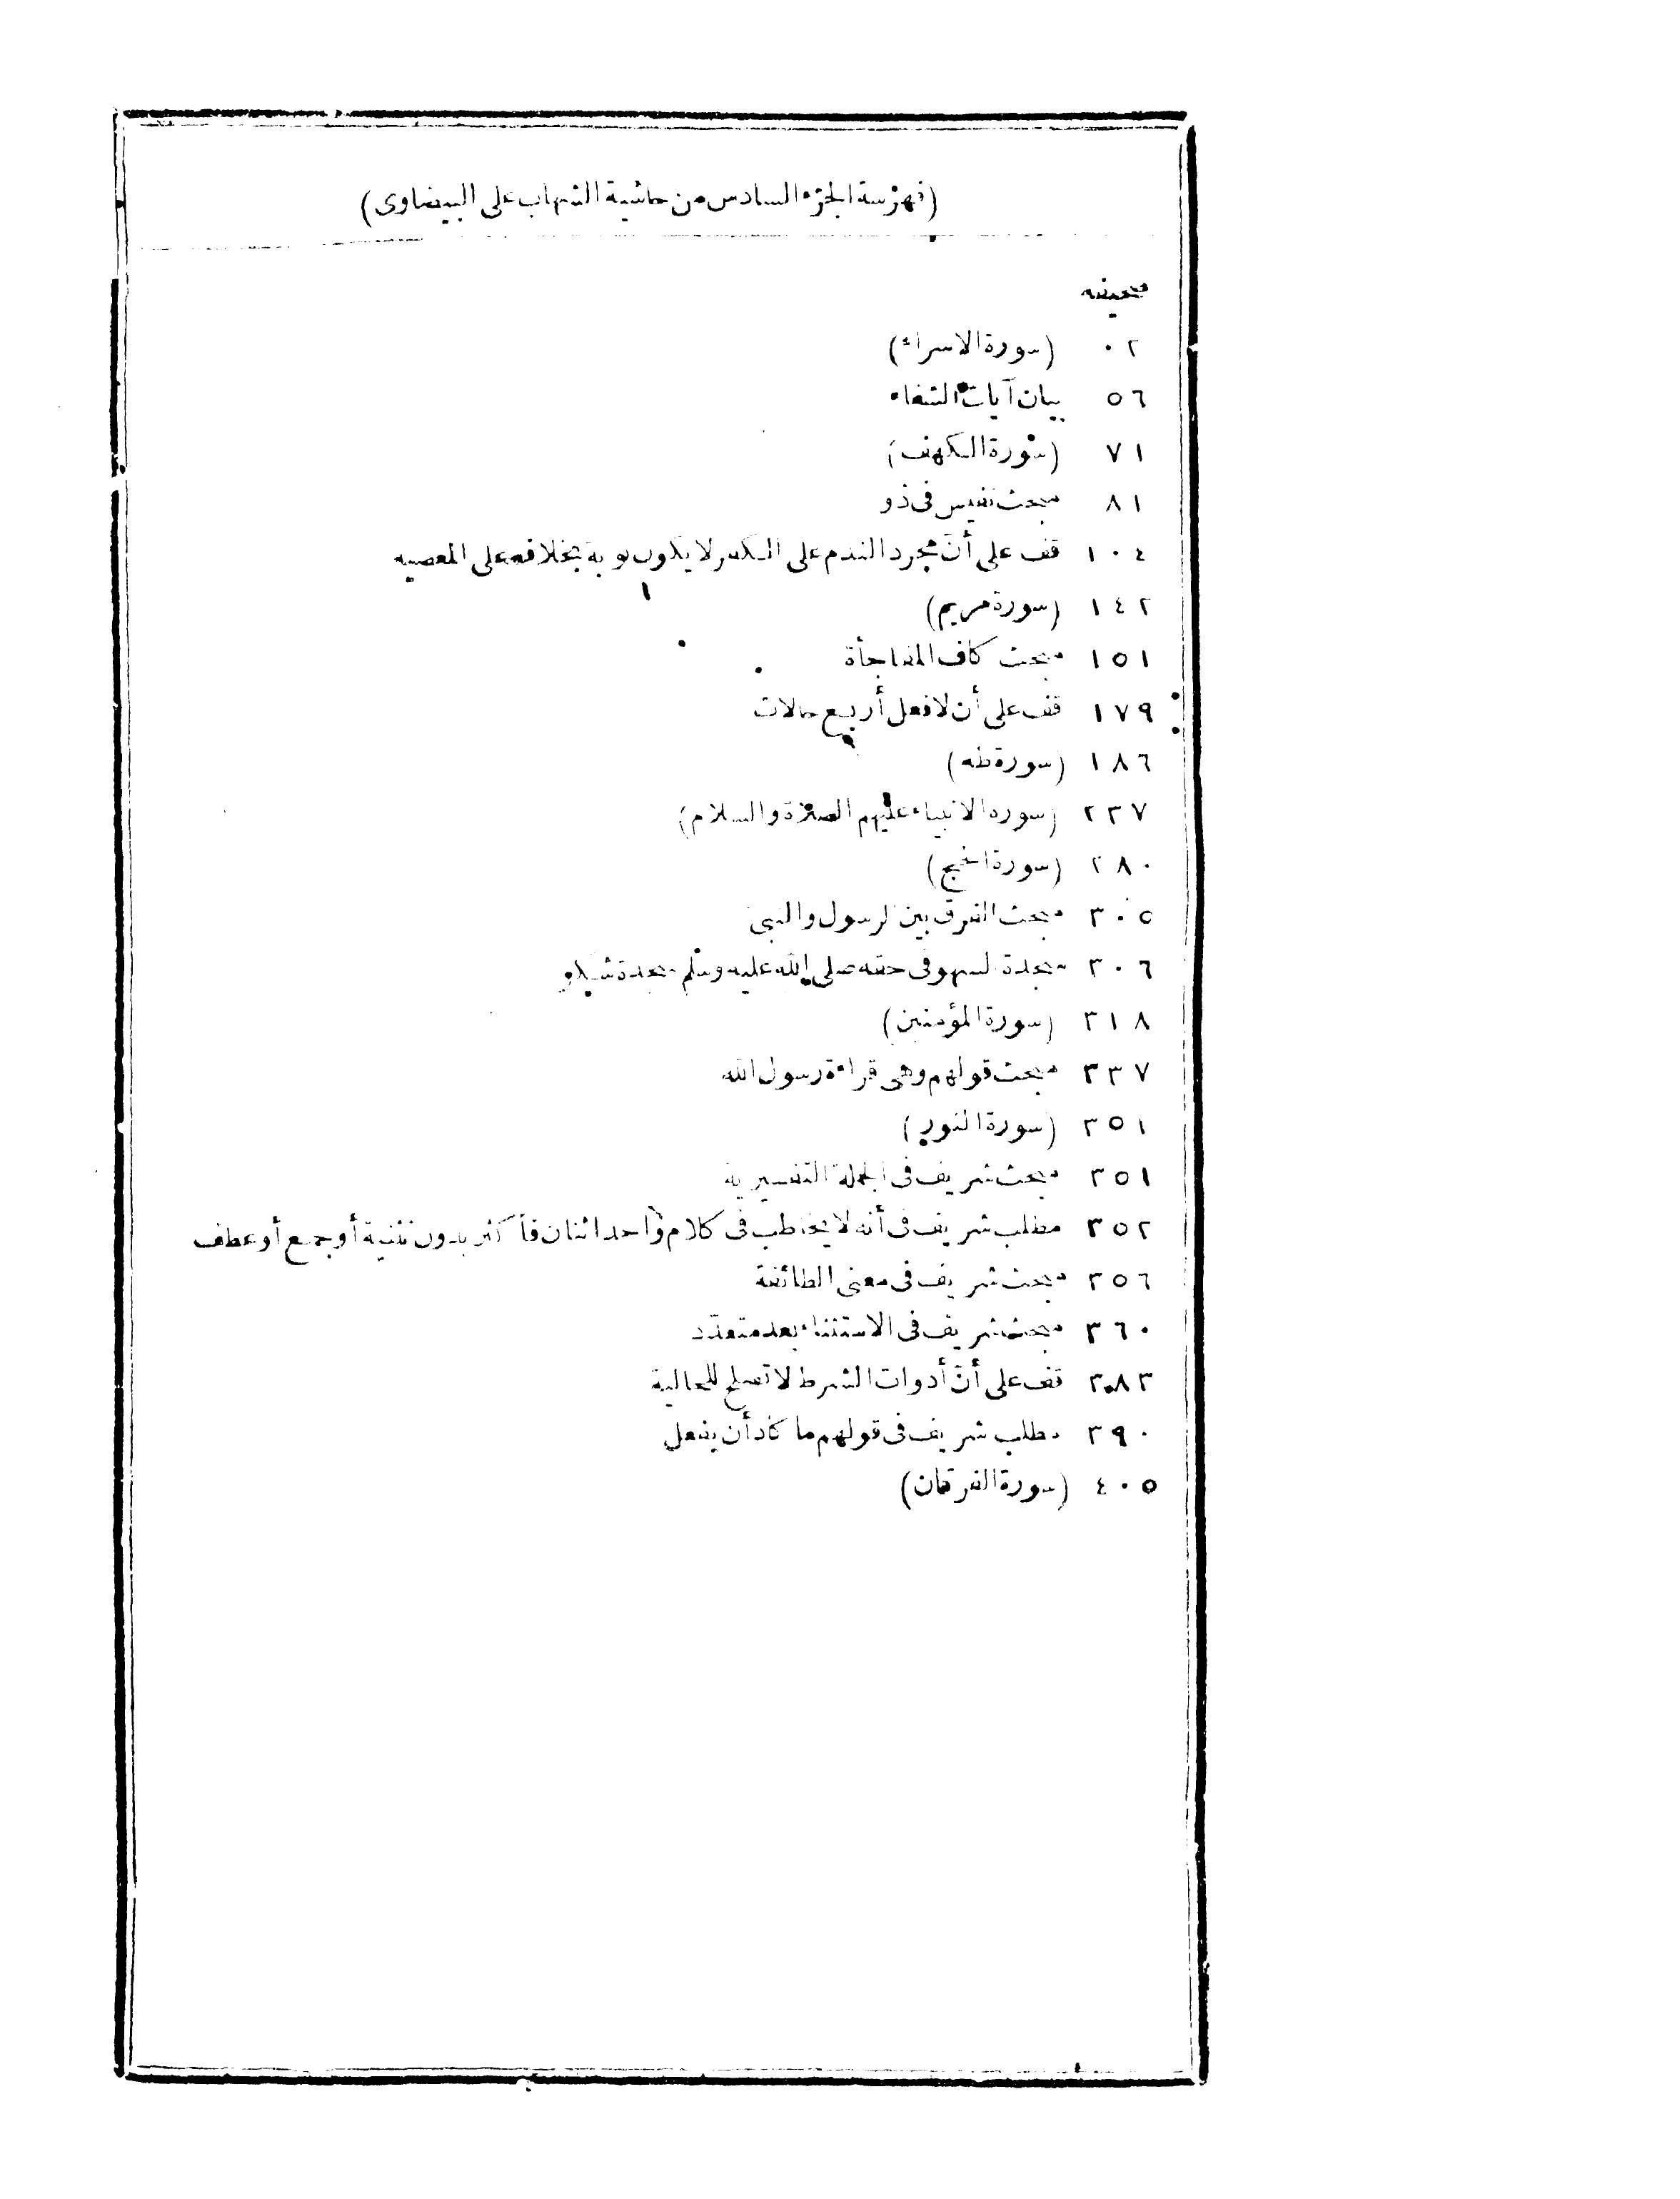 (فهرسة الجزء السادس من حاشية الشهاب على البيضاوى)
صحيفه
٠٢ (سورة الاسراء)
٥٦ بيان آيات الشفاء
٧١ (سورة الكهف)
٨١ مبحث نفيس فى ذو
١٠٤ قف على أنّ مجرد الندم على الكفر لا يكون توبة بخلافه على المعصيه
١٤٢ (سورة مريم)
١٥١ مبحث كاف المفاجأة
١٧٩ قف على أن لافعل أربع حالات
١٨٦ (سورة طه)
٢٣٧ (سورة الانبياء عليهم الصلاة والسلام)
٢٨٠ (سورة الحج)
٣٠٥ مبحث الفرق بين الرسول والنبى
٣٠٦ سجدة السهو فى حقه صلى الله عليه وسلم سجدة شكر
٣١٨ (سورة المؤمنين)
٣٣٧ مبحث قولهم وهى قراءة رسول الله
٣٥١ (سورة النور)
٣٥١ مبحث شريف فى الجملة التفسيرية
٣٥٢ مطلب شريف فى أنه لا يخاطب فى كلام واحد اثنان فأكثر بدون تثنية أو جمع أو عطف
٣٥٦ مبحث شريف فى معنى الطائفة
٣٦٠ مبحث شريف فى الاستثناء بعد متعدّد
٣٨٣ قف على أنّ أدوات الشرط لا تصلح للحالية
٣٩٠ مطلب شريف فى قولهم ما كاد أن يفعل
٤٠٥ (سورة الفرقان)